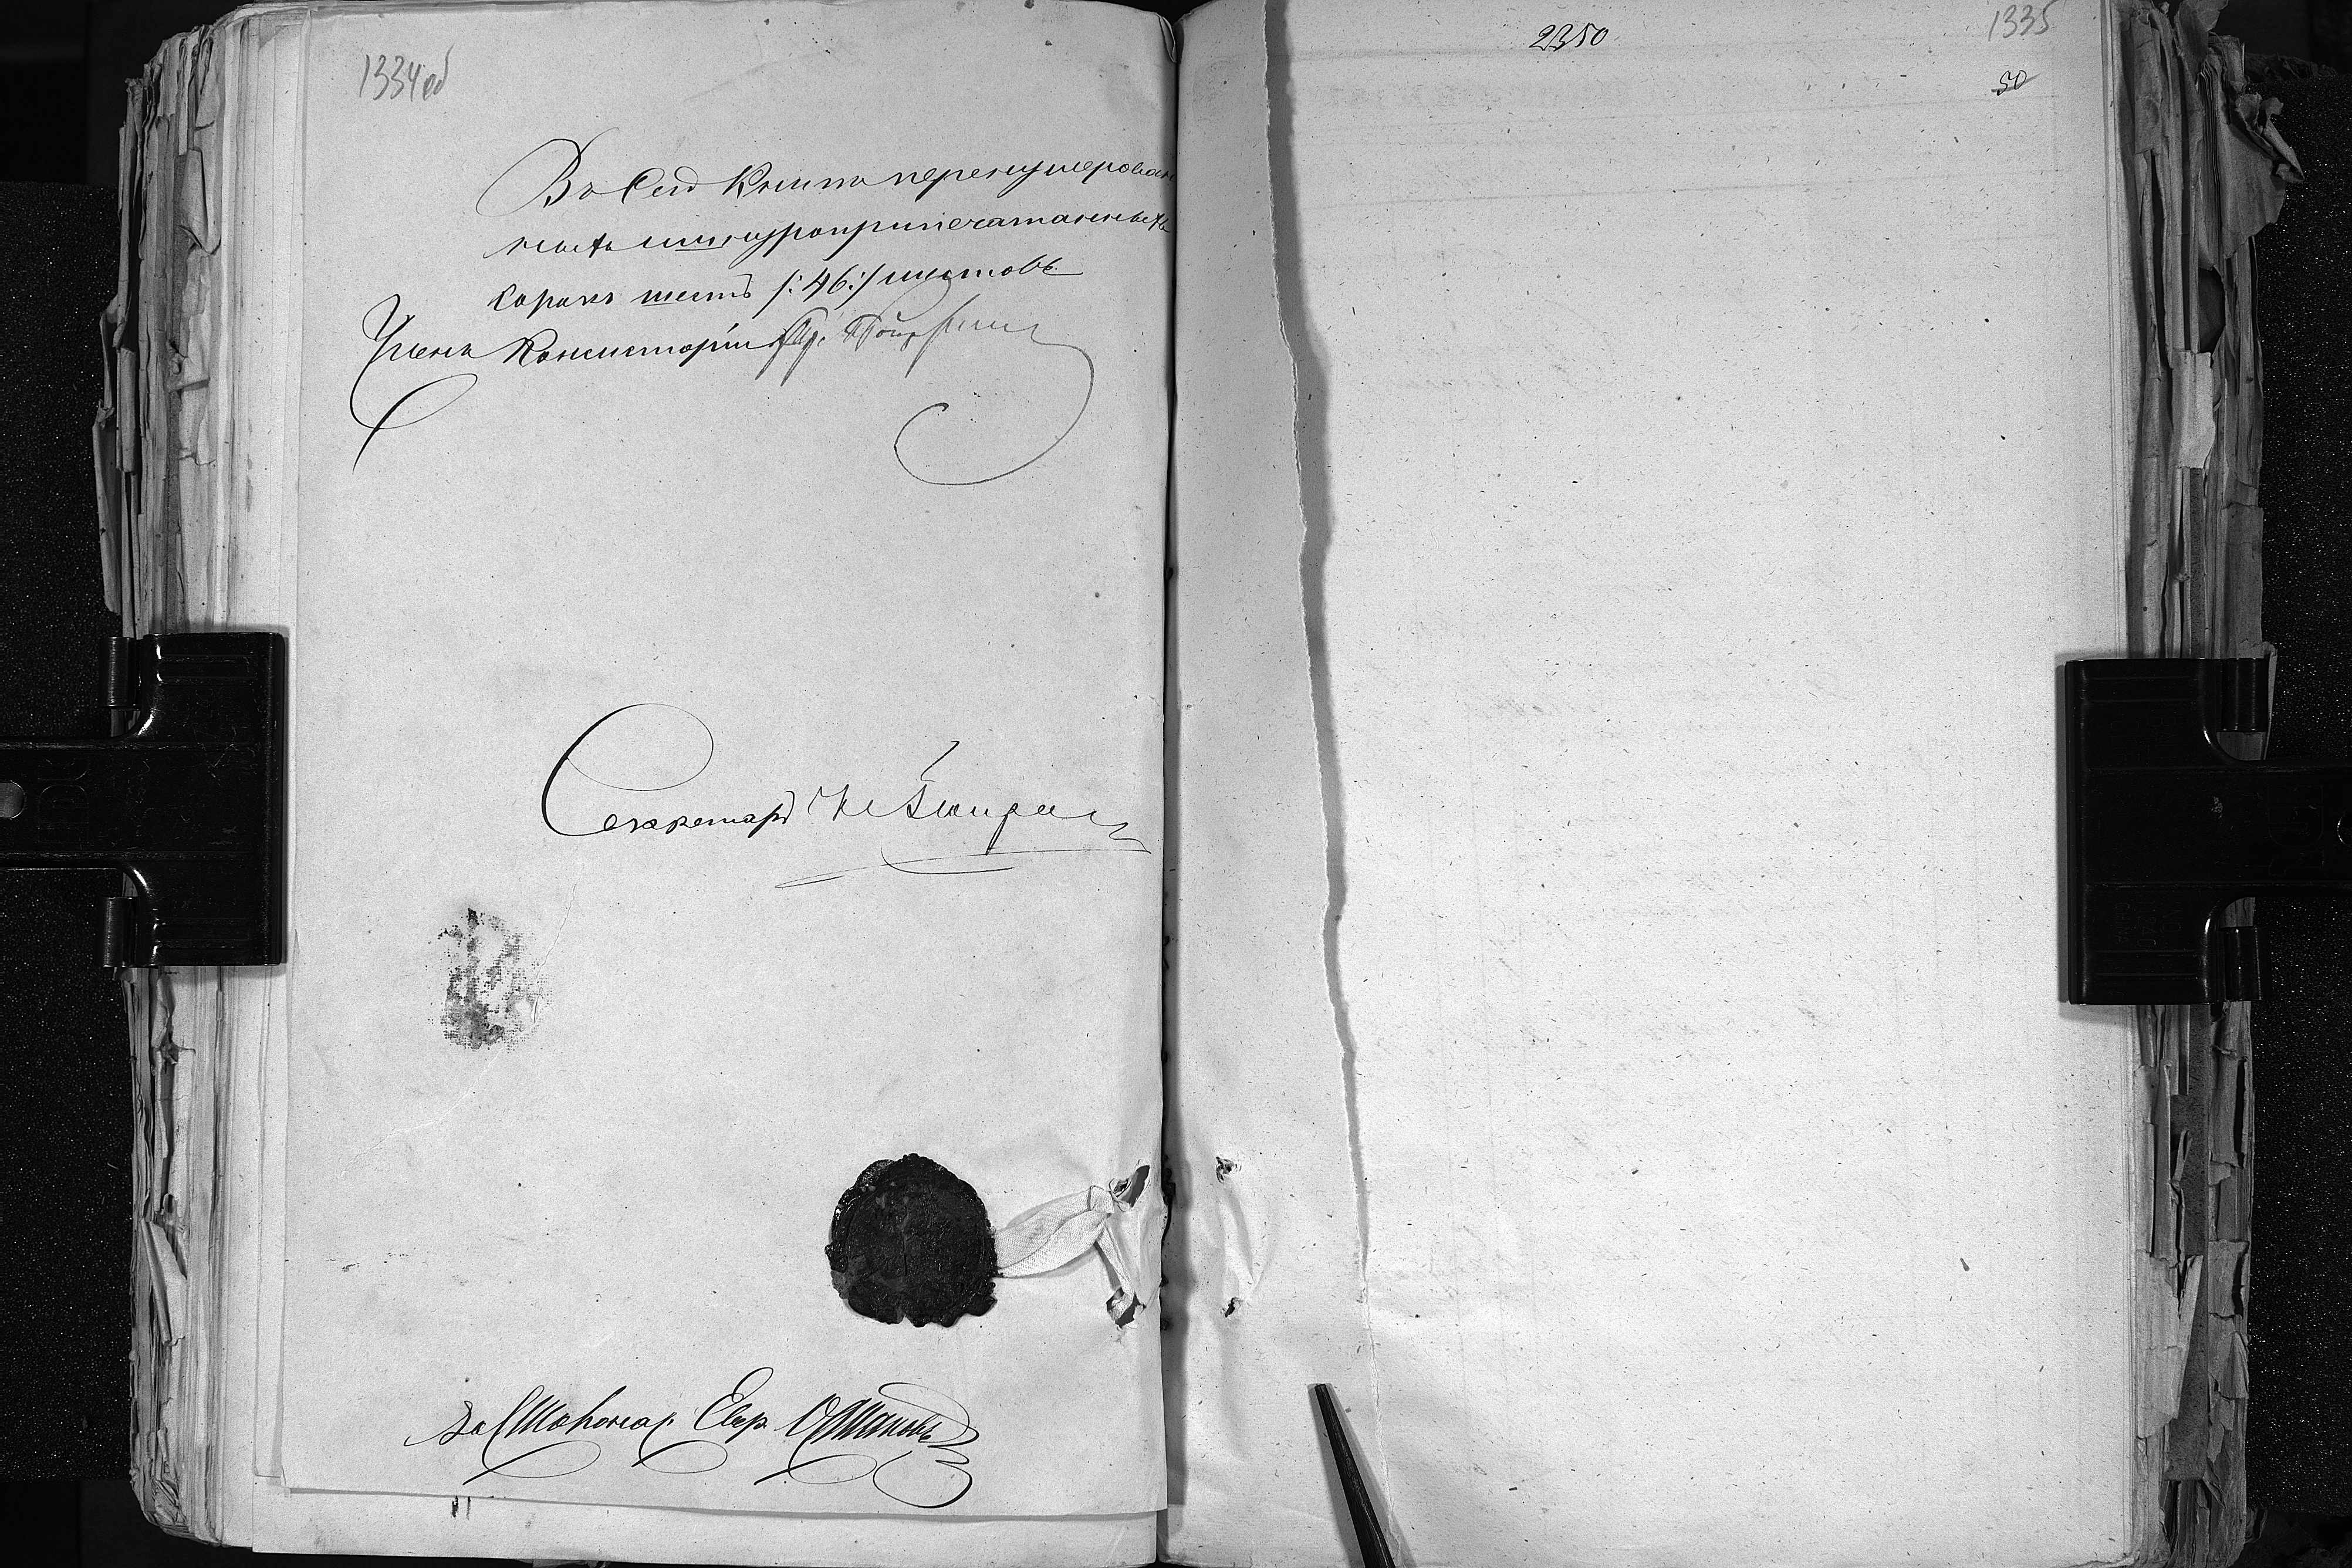 1334об
Въ Сей Книгѣ перенумерован
ныхъ шнуроприпечатанныхъ
сорокъ шесть /:46:/ листовъ.
Членъ Консисторіи
Секретарь
За Столонач.
2350
1335
50